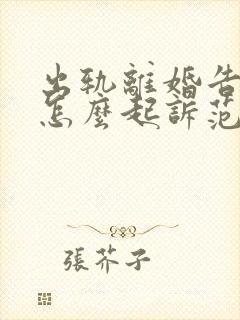 出軌離婚告
怎麼起訴范
張芥子